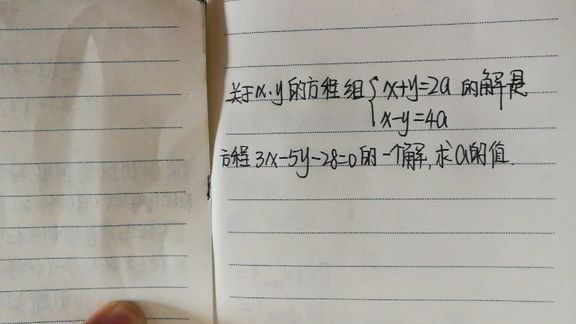 关于x、y的方程组{x+y=2a 的解是
x-y=4a
方程3x-5y-28=0的一个解,求a的值.